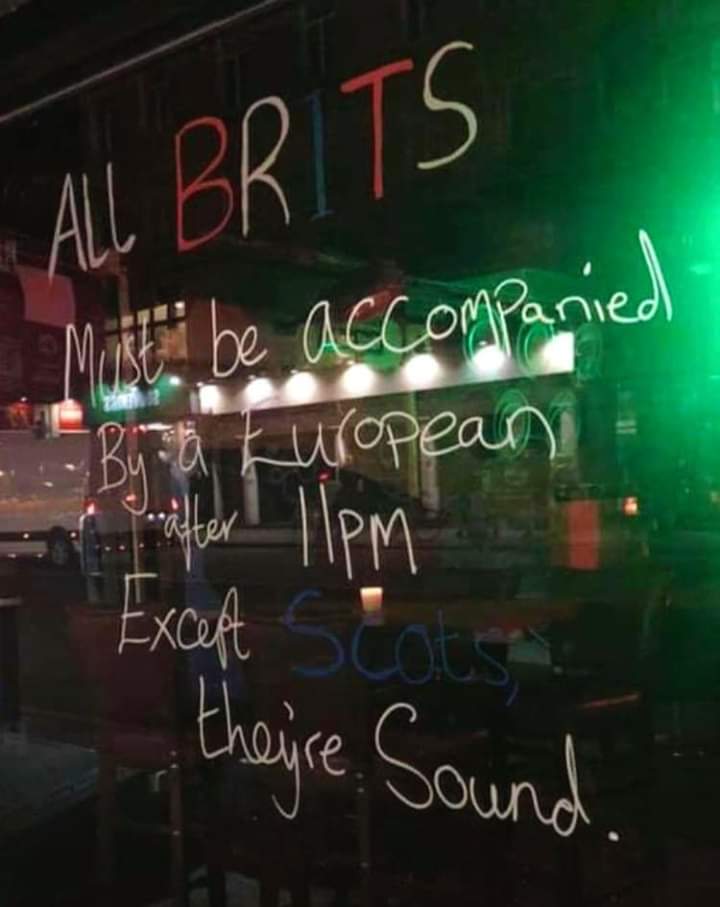 ALL BRITS
Must be accompanied
By a European
after 11PM
Except Scots,
they're Sound.